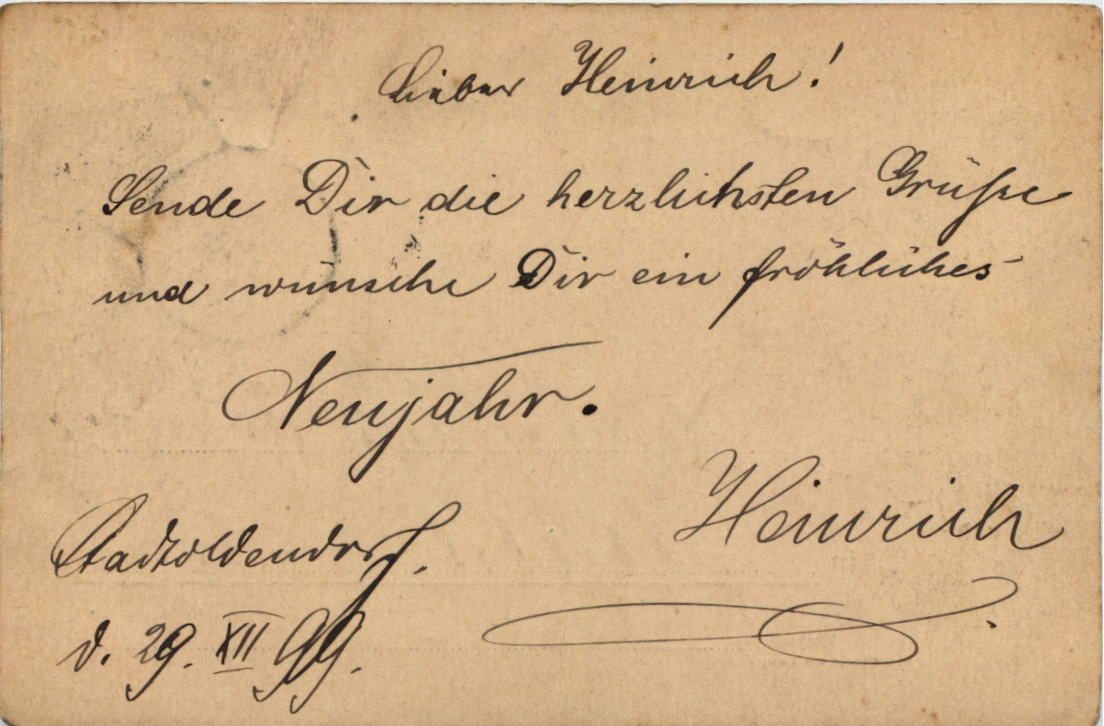 Lieber Heinrich!
Sende Dir die herzlichsten Grüße
und wünsche Dir ein fröhliches
Neujahr.
Heinrich
Stadtoldendorf.
d. 29. XII 99.